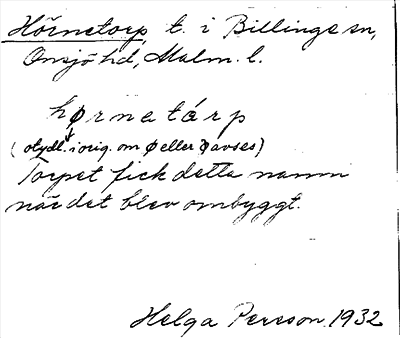 Hörnetorp, t. i Billinge sn,
Onsjö hd, Malm. l.
hørnetårp
(otydl. i orig. om ø eller ə avses)
Torpet fick detta namn
när det blev ombyggt.
Helga Persson 1932